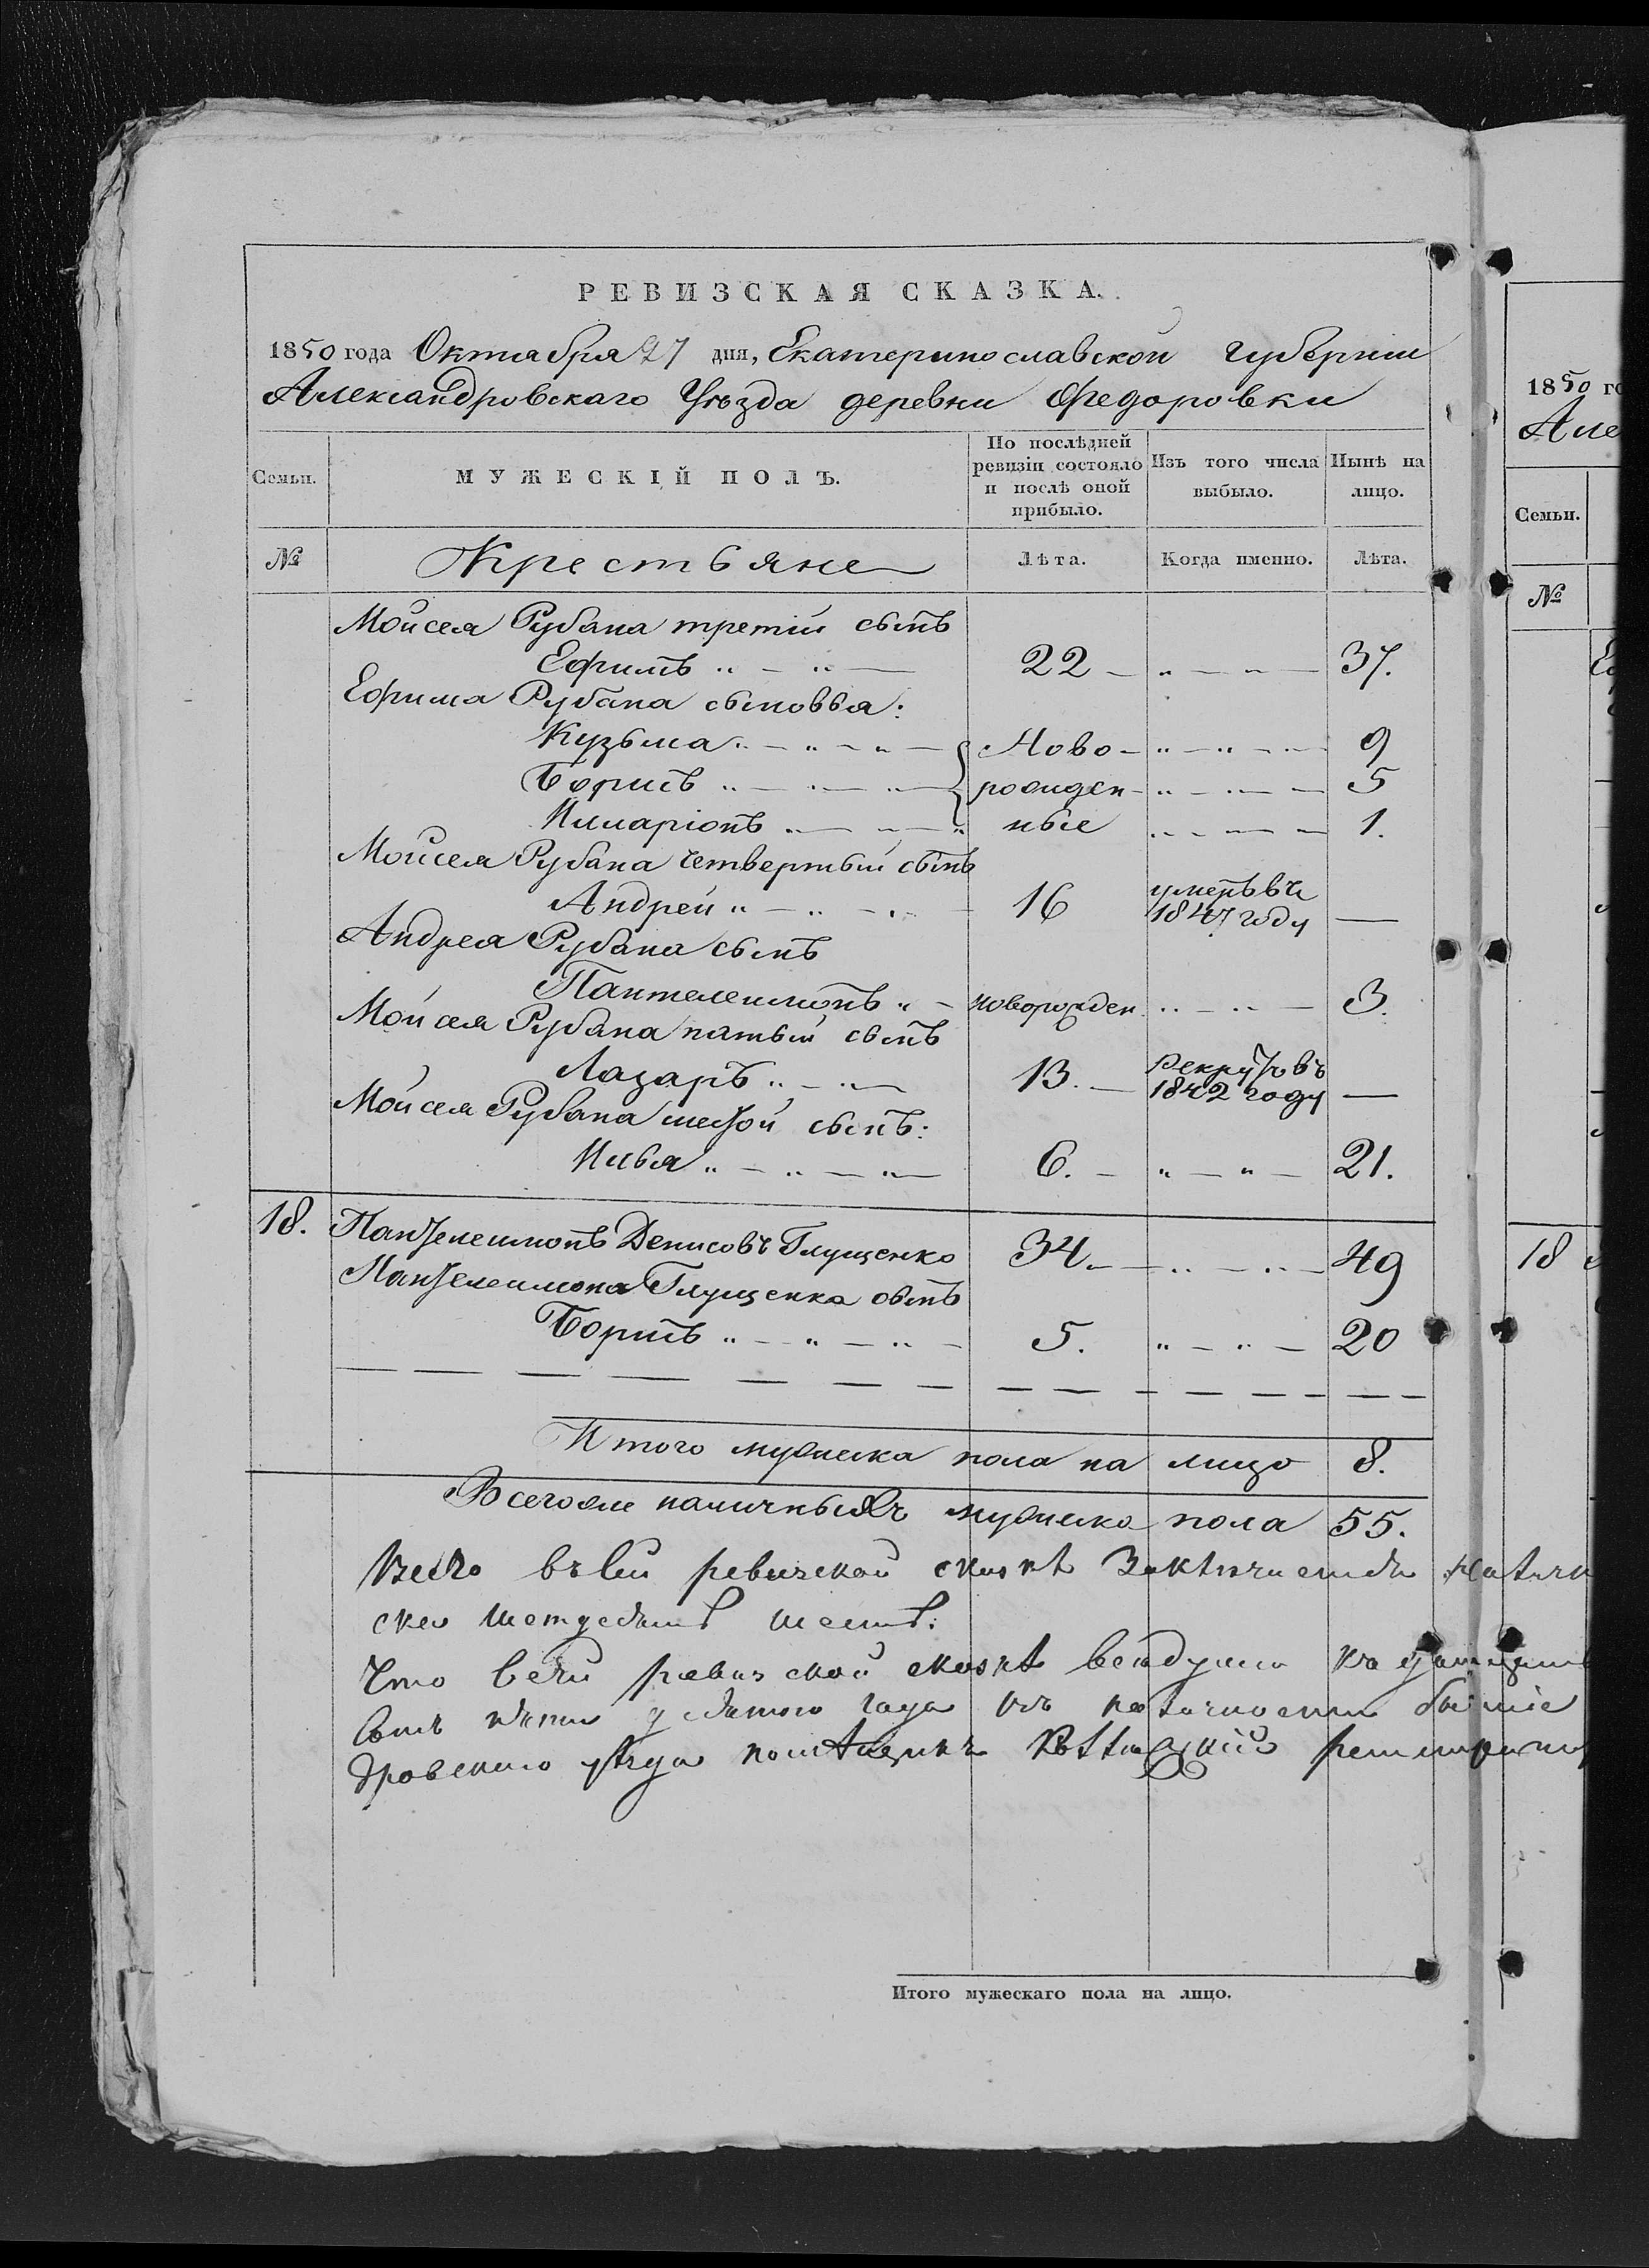 РЕВИЗСКАЯ СКАЗКА.
1850 года Октября 27 дня, Екатеринославской губерніи
Александровскаго Уѣзда деревни Федоровки
Семьи. МУЖЕСКІЙ ПОЛЪ. По послѣдней ревизіи состояло и послѣ оной прибыло. Изъ того числа выбыло. Нынѣ на лицо.
№ Крестьяне Лѣта. Когда именно. Лѣта.
Мойсея Рубана третій сынъ
Ефимъ 22 37.
Ефима Рубана сыновья:
Кузьма Ново- 9
Борисъ рожден- 5
Илларіонъ ные 1.
Мойсея Рубана четвертый сынъ
Андрей 16 умеръ въ 1847 году —
Андрея Рубана сынъ
Пантелеимонъ новорожден. 3.
Мойсея Рубана пятый сынъ
Лазарь 13. рекрут. въ 1842 году —
Мойсея Рубана шестой сынъ:
Илья 6. 21.
18. Пантелеимонъ Денисовъ Глущенко 34 49
Пантелеимона Глущенка сынъ
Борисъ 5. 20
Итого мужеска пола на лицо 8.
Всего же наличныхъ мужеска пола 55.
Всего въ сей ревизской сказкѣ
ско
Что в сей ревизской сказкѣ
года въ наличности
дровскаго уѣзда помѣщикъ
Итого мужескаго пола на лицо.
1850 го
Але
Семьи.
№
18